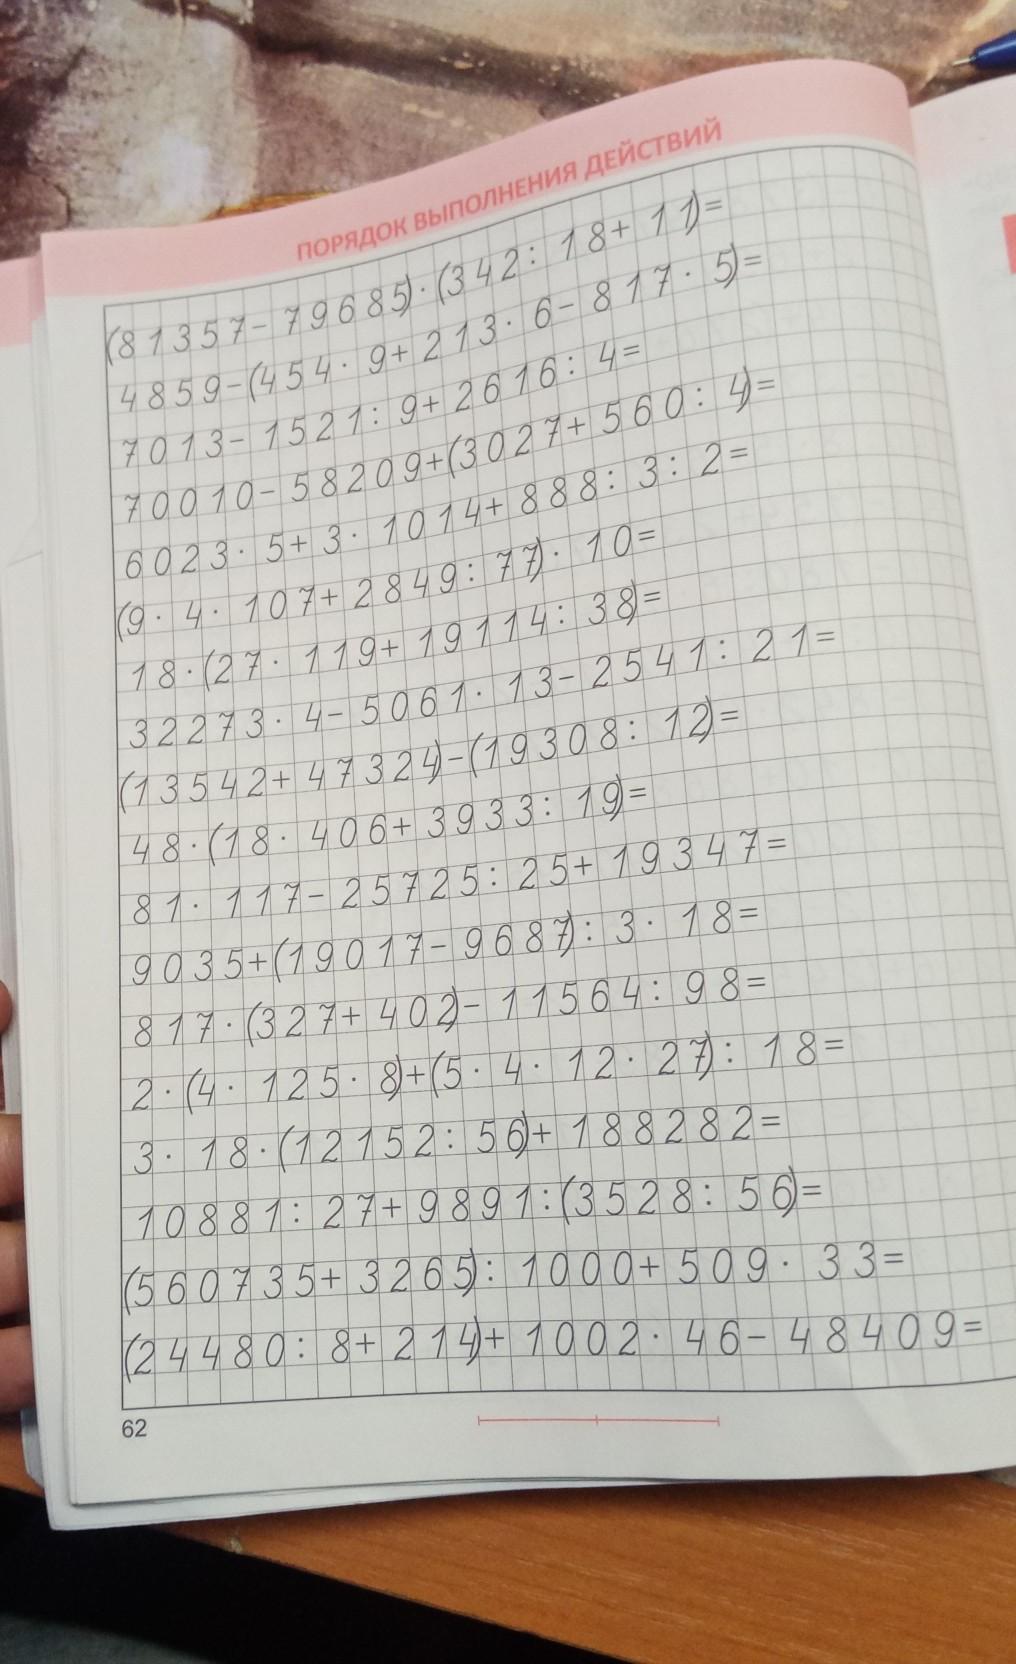 ПОРЯДОК ВЫПОЛНЕНИЯ ДЕЙСТВИЙ
(81357-79685)·(342:18+11)=
4859-(454·9+213·6-817·5)=
7013-1521:9+2616:4=
70010-58209+(3027+560:4)=
6023·5+3·1014+888:3:2=
(9·4·107+2849:77)·10=
18·(27·119+19114:38)=
32273·4-5061·13-2541:21=
(13542+47324)-(19308:12)=
48·(18·406+3933:19)=
81·117-25725:25+19347=
9035+(19017-9687):3·18=
817·(327+402)-11564:98=
2·(4·125·8)+(5·4·12·27):18=
3·18·(12152:56)+188282=
10881:27+9891:(3528:56)=
(560735+3265):1000+509·33=
(24480:8+214)+1002·46-48409=
62